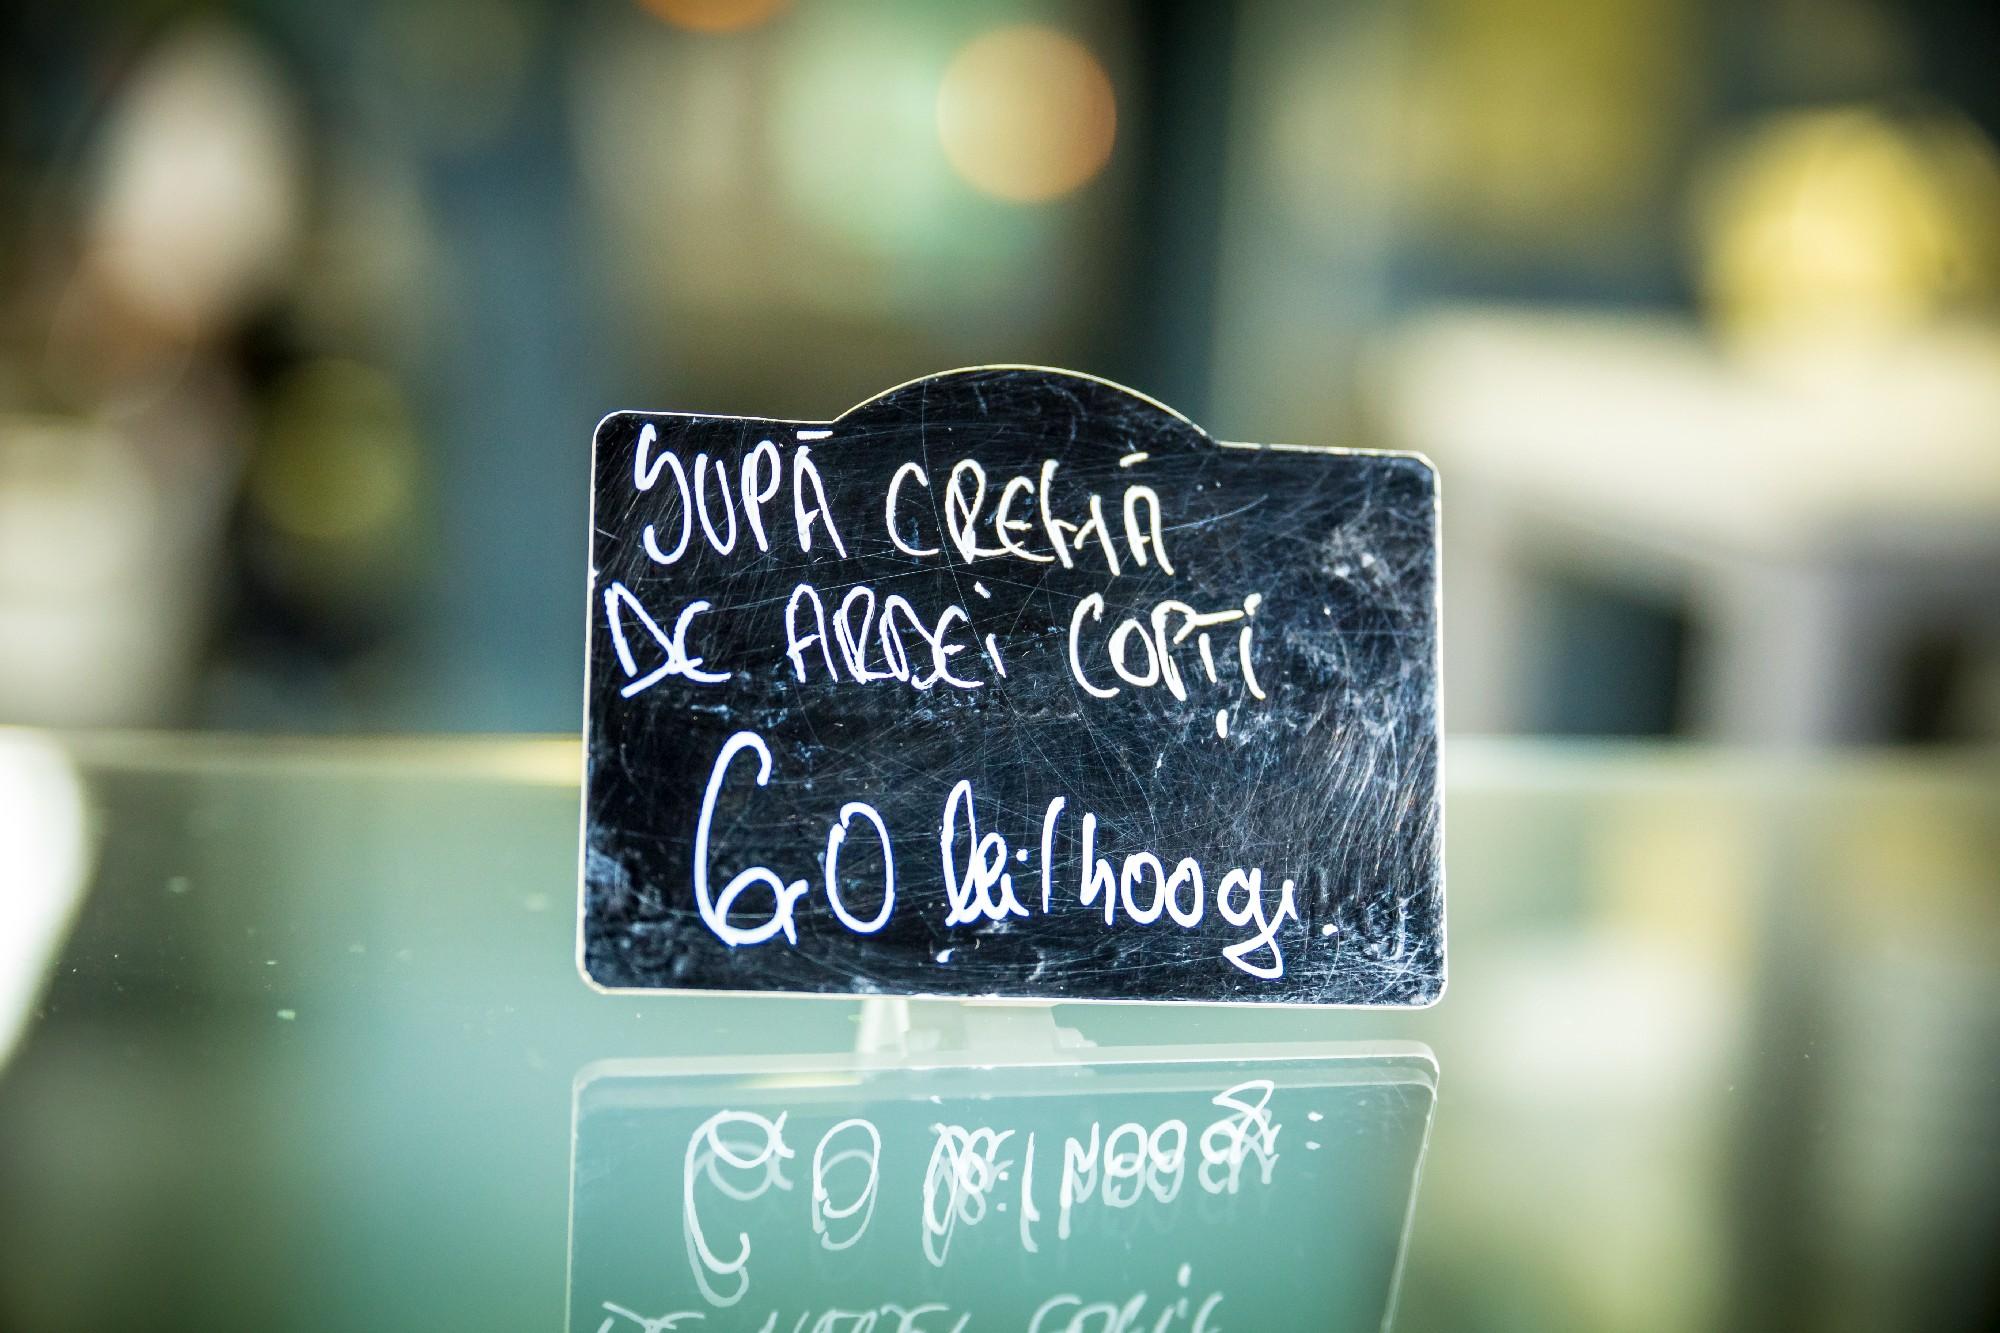 SUPĂ CREMĂ
DE ARDEI COPȚI
60 lei/400g.